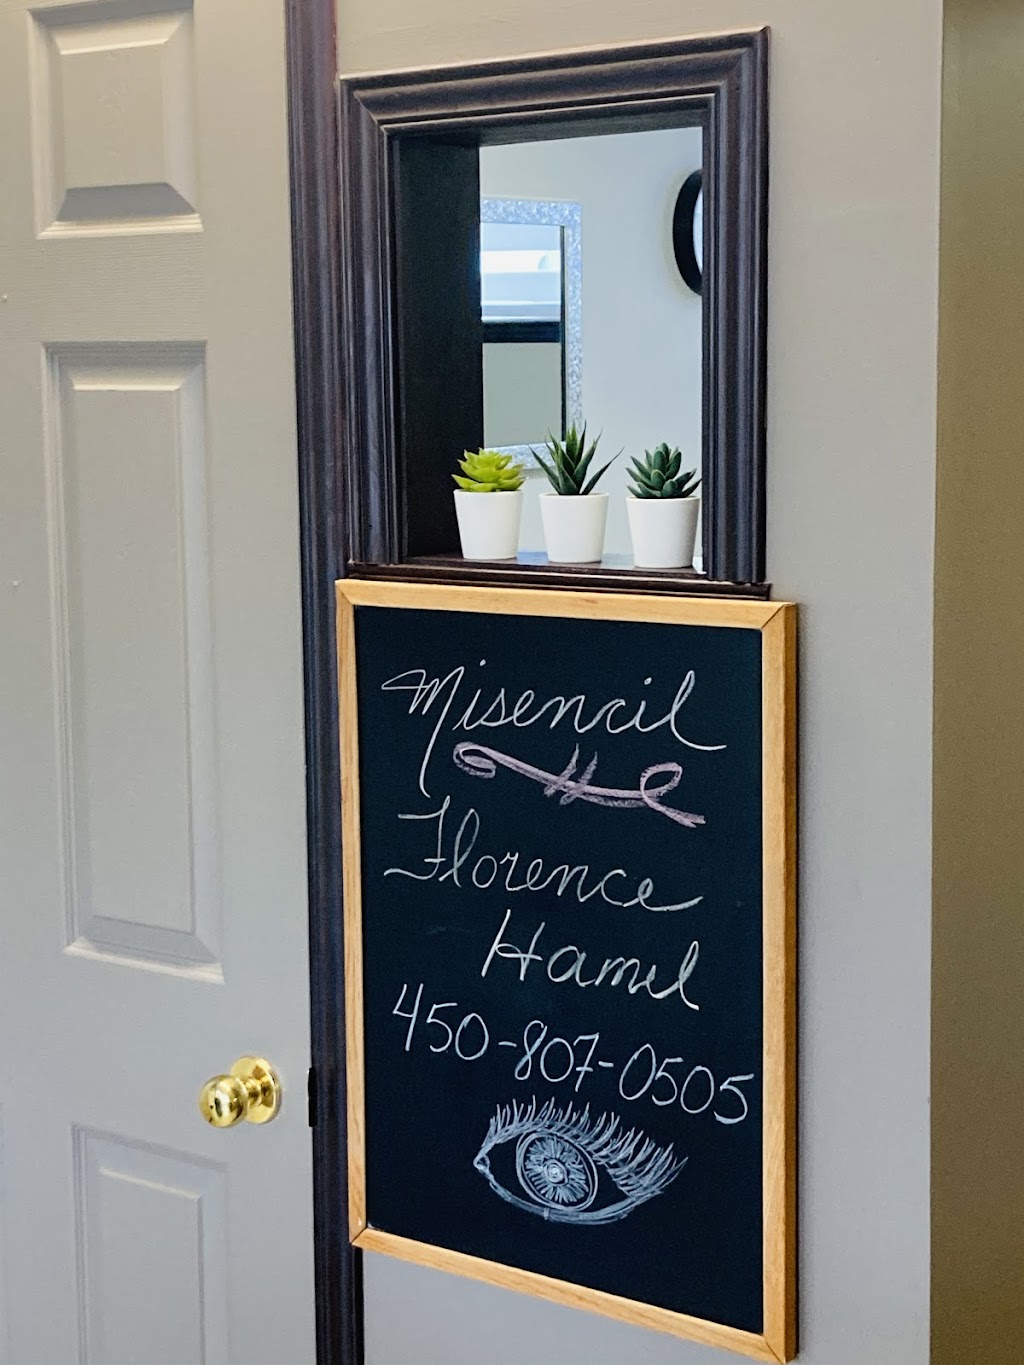 Misencil
Florence
Hamel
450-807-0505